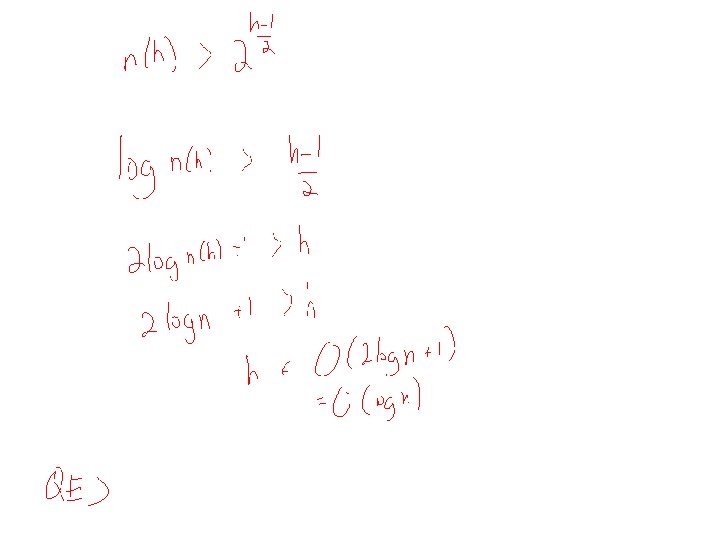 n(h) > 2^{\frac{h-1}{2}}
log n(h) > \frac{h-1}{2}
2log n(h) + 1 > h
2 log n + 1 > h
h < O(2 log n + 1)
= O(log n)
QED